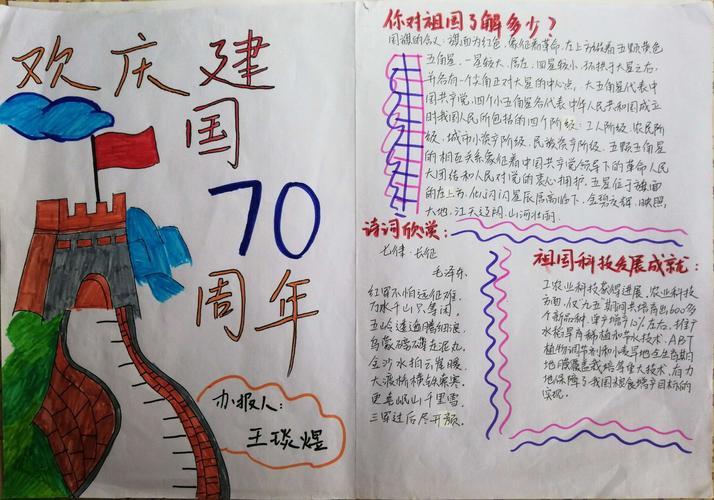 欢庆建
国
70
周年
办报人：
王琰煜
你对祖国了解多少？
国旗的含义：旗面为红色，象征着革命，左上方缀着五颗黄色
五角星，一星较大，居左，四星较小，环拱于大星之右，
并各有一个角正对大星的中心点，大五角星代表中
国共产党，四个小五角星各代表中华人民共和国成立
时我国人民所包括的四个阶级：工人阶级、农民阶
级、城市小资产阶级、民族资产阶级。五颗五角星
的相互关系象征着中国共产党领导下的革命人民
大团结和人民对党的衷心拥护。五星位于旗面
的左上方，似闪闪星辰居高临下，金碧交辉，映照
大地，江天辽阔，山河壮丽。
诗词欣赏：
七律·长征
毛泽东
红军不怕远征难，
万水千山只等闲。
五岭逶迤腾细浪，
乌蒙磅礴走泥丸。
金沙水拍云崖暖，
大渡桥横铁索寒。
更喜岷山千里雪，
三军过后尽开颜。
祖国科技发展成就：
1.农业科技蒙得进展，农业科技
方面，仅九五期间共培育出600多
个新品种，单产增产12%左右，推广
水稻旱育稀植和节水技术，ABT
植物调节剂和小麦旱地全生育期
地膜覆盖栽培等重大技术，有力
地保障了我国粮食增产目标的
实现。